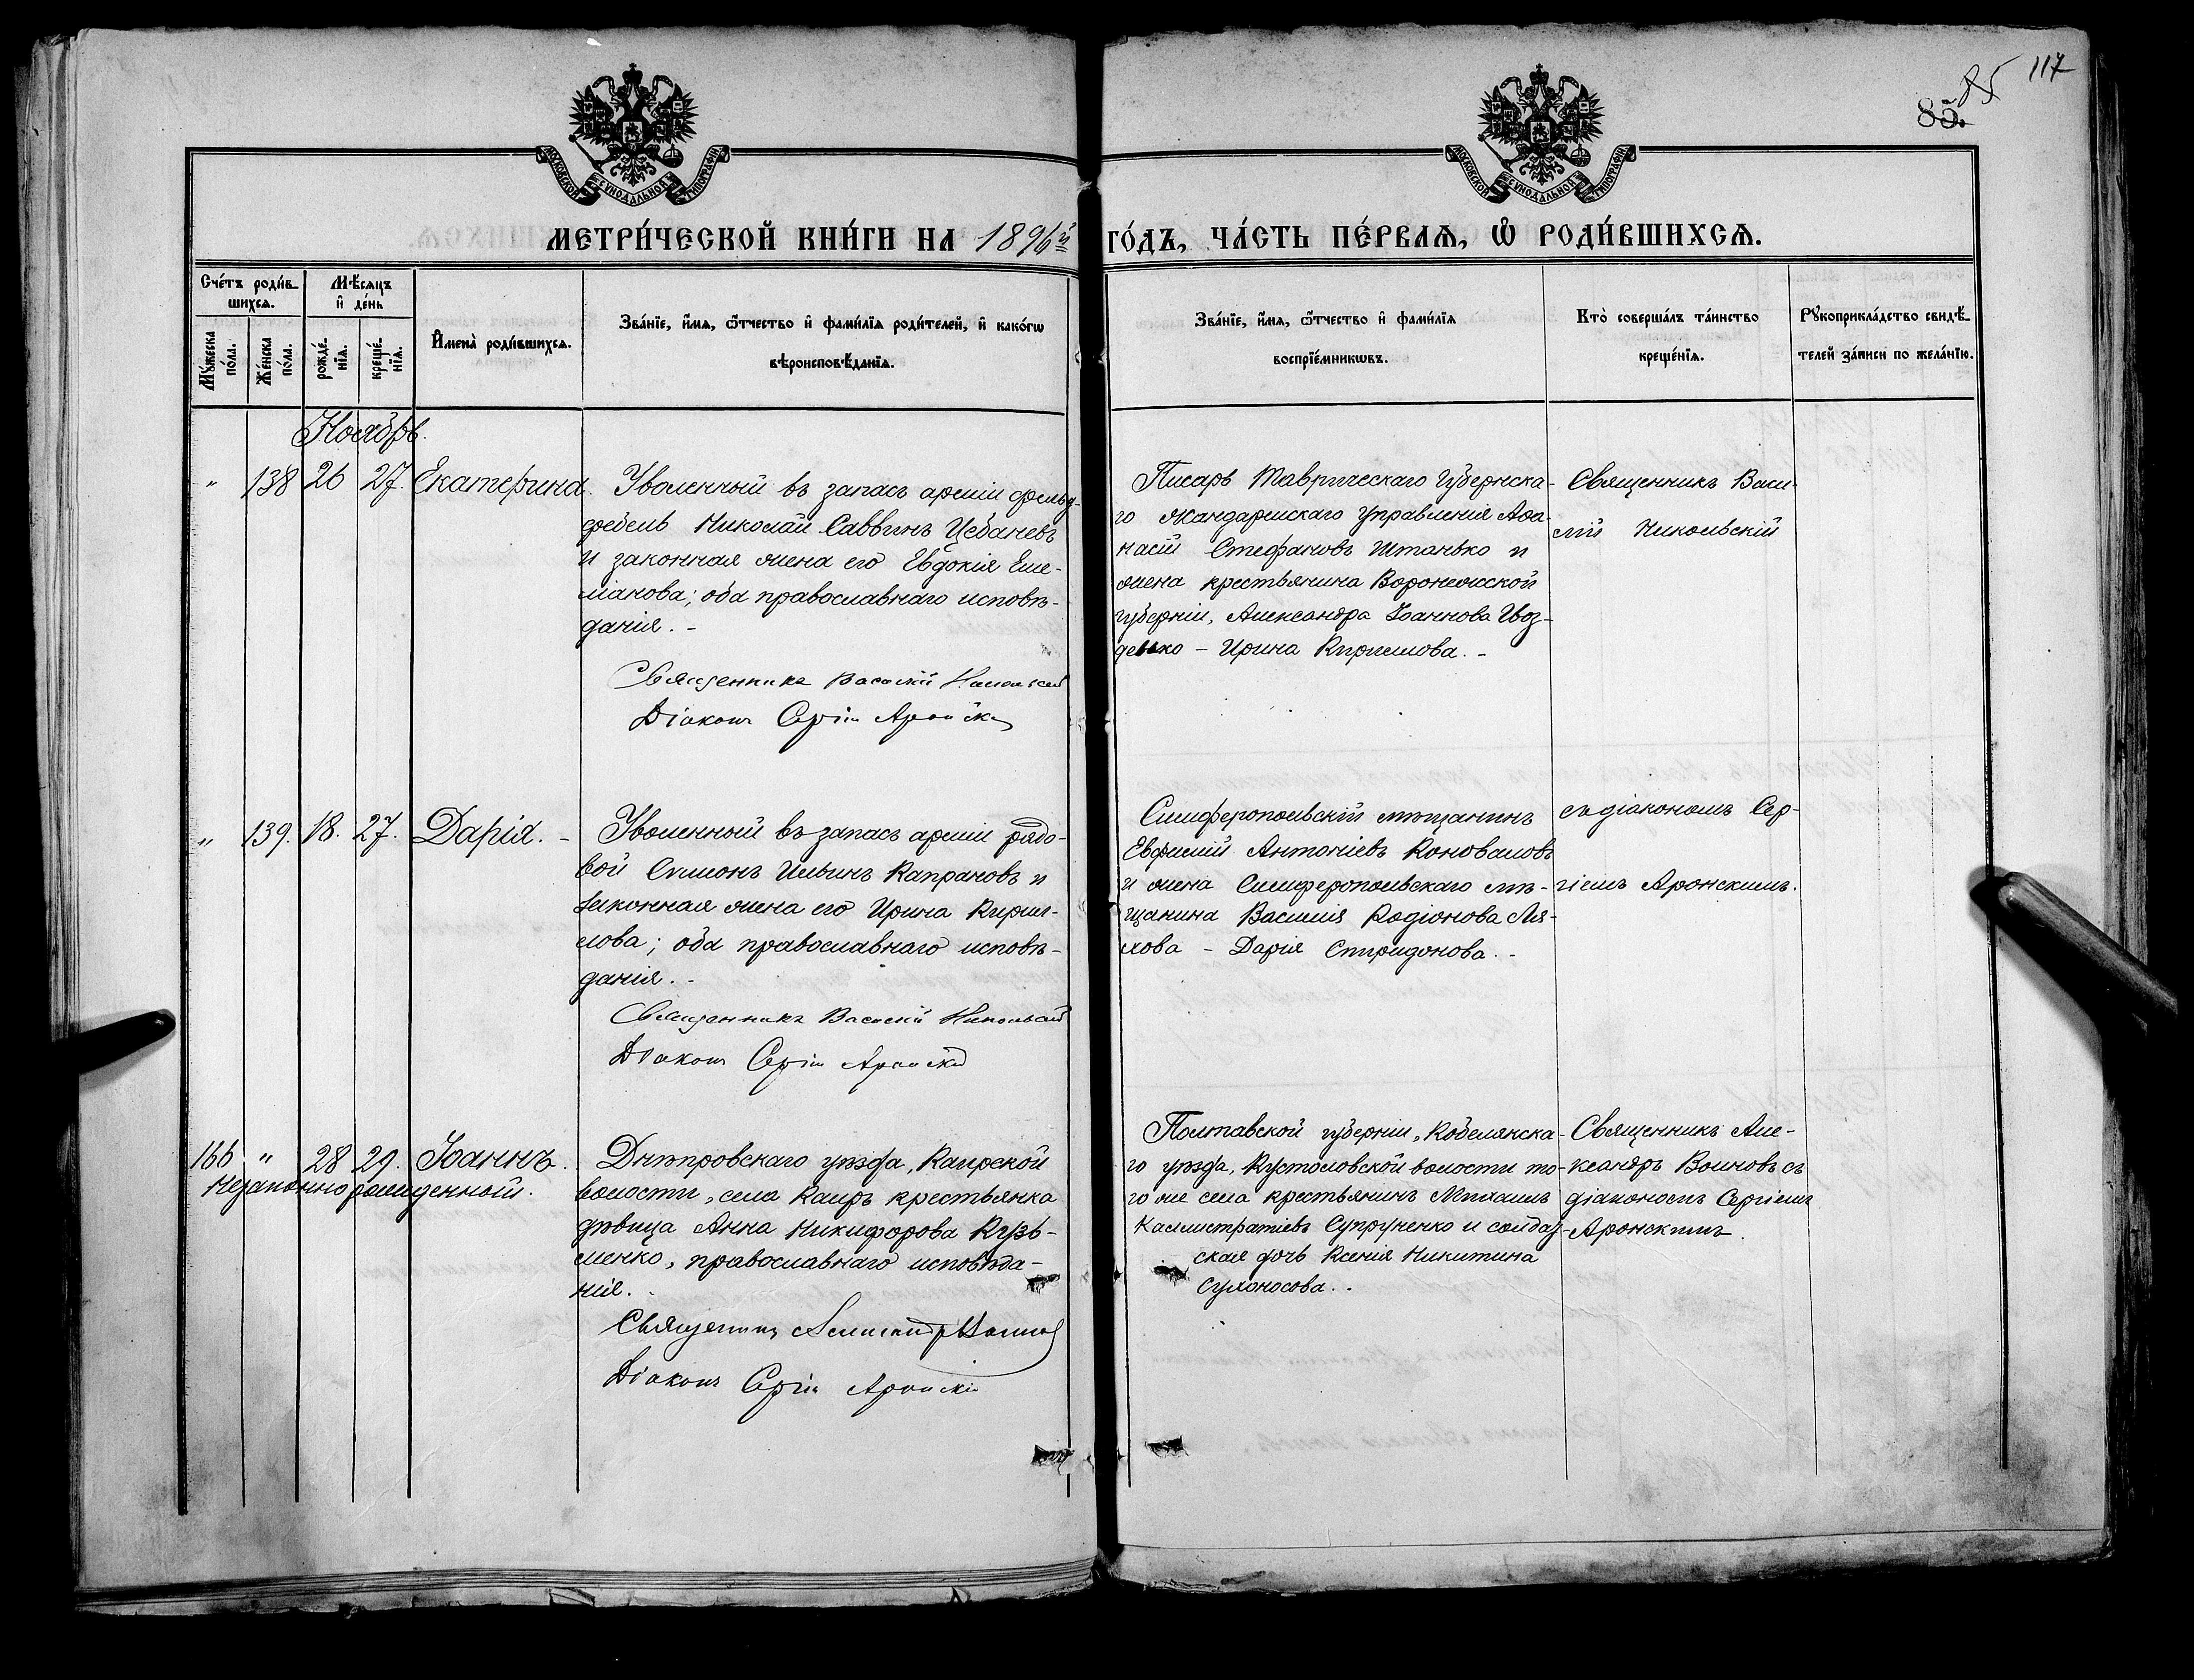 117
85
85.
МОСКОВСКОЙ СѴНОДАЛЬНОЙ ТИПОГРАФІИ
МОСКОВСКОЙ СѴНОДАЛЬНОЙ ТИПОГРАФІИ
МЕТРИ́ЧЕСКОЙ КНИ́ГИ НА 1896й ГО́ДЪ, ЧА́СТЬ ПЕ́РВАѦ, Ѡ҆ РОДИ́ВШИХСѦ.
Сче́тъ роди́в
шихсѧ.
Мꙋ́жеска по́ла.
Же́нска по́ла.
Мѣ́сѧцъ
и҆ де́нь
рожде́нїѧ.
креще́нїѧ.
И҆мена̀ роди́вшихсѧ.
Зва́нїе, и҆́мѧ, ѻ҆́тчество и҆ фами́лїѧ роди́телей, и҆ како́гѡ
вѣроисповѣ́данїѧ.
Зва́нїе, и҆́мѧ, ѻ҆́тчество и҆ фами́лїѧ
воспрїе́мникѡвъ.
Кто̀ соверша́лъ та́инство
креще́нїѧ.
Рꙋкоприкла́дство свидѣ́
телей за́писи по жела́нїю.
Ноябрь.
" 138 26 27. Екатерина.
Уволенный въ запасъ арміи фельд-
фебель Николай Саввинъ Цебаневъ
и законная жена его Евдокія Еме-
ліанова; оба православнаго исповѣ-
данія. -
Священникъ Василій Никольскій
Діаконъ Сергій Аронскій
Писарь Таврическаго Губернска-
го жандармскаго управленія Аѳа-
насій Стефановъ Штанько и
жена крестьянина Воронежской
губерніи, Александра Іоаннова Гвоз-
денко - Ирина Кириллова. -
Священникъ Васи-
лій Никольскій
" 139. 18. 27. Дарія. -
Уволенный въ запасъ арміи рядо-
вой Симонъ Ильинъ Капрановъ и
законная жена его Ирина Кирил-
лова; оба православнаго исповѣ-
данія. -
Священникъ Василій Никольскій
Діаконъ Сергій Аронскій
Симферопольскій мѣщанинъ
Евфимій Антоніевъ Коноваловъ
и жена Симферопольскаго мѣ-
щанина Василія Родіонова Ля-
хова - Дарія Спиридонова. -
съ діакономъ Сер-
гіемъ Аронскимъ.
166 " 28 29. Іоаннъ.
Незаконно рожденный.
Днѣпровскаго уѣзда, Каирской
волости, села Каиръ крестьянка
дѣвица Анна Никифорова Кузь-
менко, православнаго исповѣда-
нія.
Священникъ Александръ Воиновъ
Діаконъ Сергій Аронскій
Полтавской губерніи, Кобелянска-
го уѣзда, Кустоловской волости то-
го же села крестьянинъ Михаилъ
Каллистратіевъ Супруненко и солдат-
ская дочь Ксенія Никитина
Сухоносова. -
Священникъ Але-
ксандръ Воиновъ съ
діакономъ Сергіемъ
Аронскимъ.